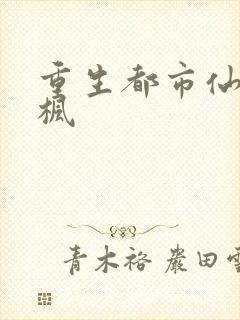 重生都市仙
楓
青木裕 巌田雪